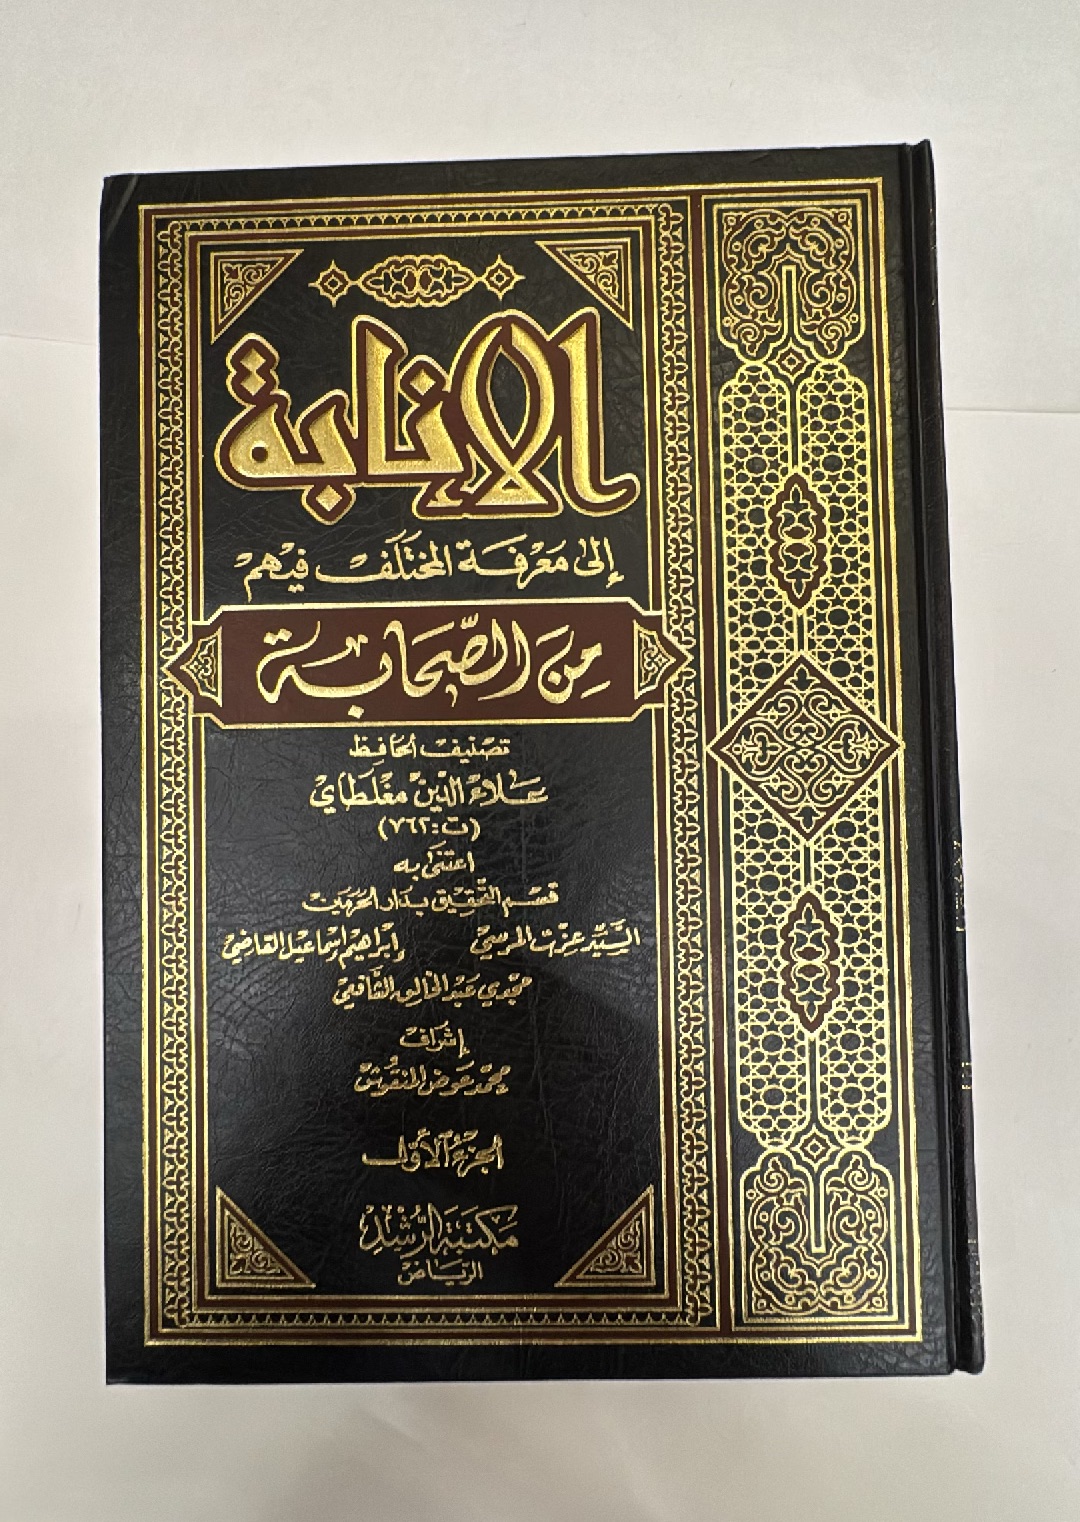 الإنابة
إلى مَعْرفَة المختَلَف فيهم
مِنَ الصَّحَابة
تصنيف الحافِظ
عَلاء الدّين مغْلَطاي
(ت:٧٦٢)
اعتَنى به
قسم التّحقِيق بدَار الحَرمَين
السَّيّد عزت المرسي إبراهيم إسماعيل القاضي
مجدي عَبد الخالق الشَّافعي
إشراف
محمّد عَوض المنقُوش
الجزءُ الأوَّل
مكتَبة الرُّشد
الرّياض